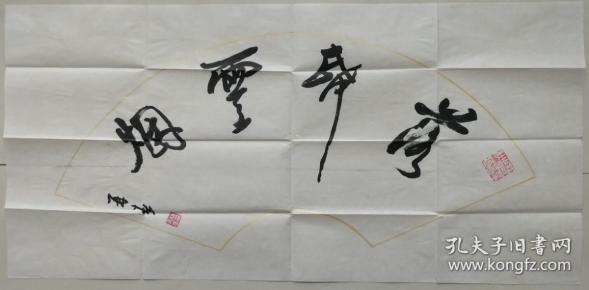 落帋雲烟
孔夫子旧书网
www.kongfz.com